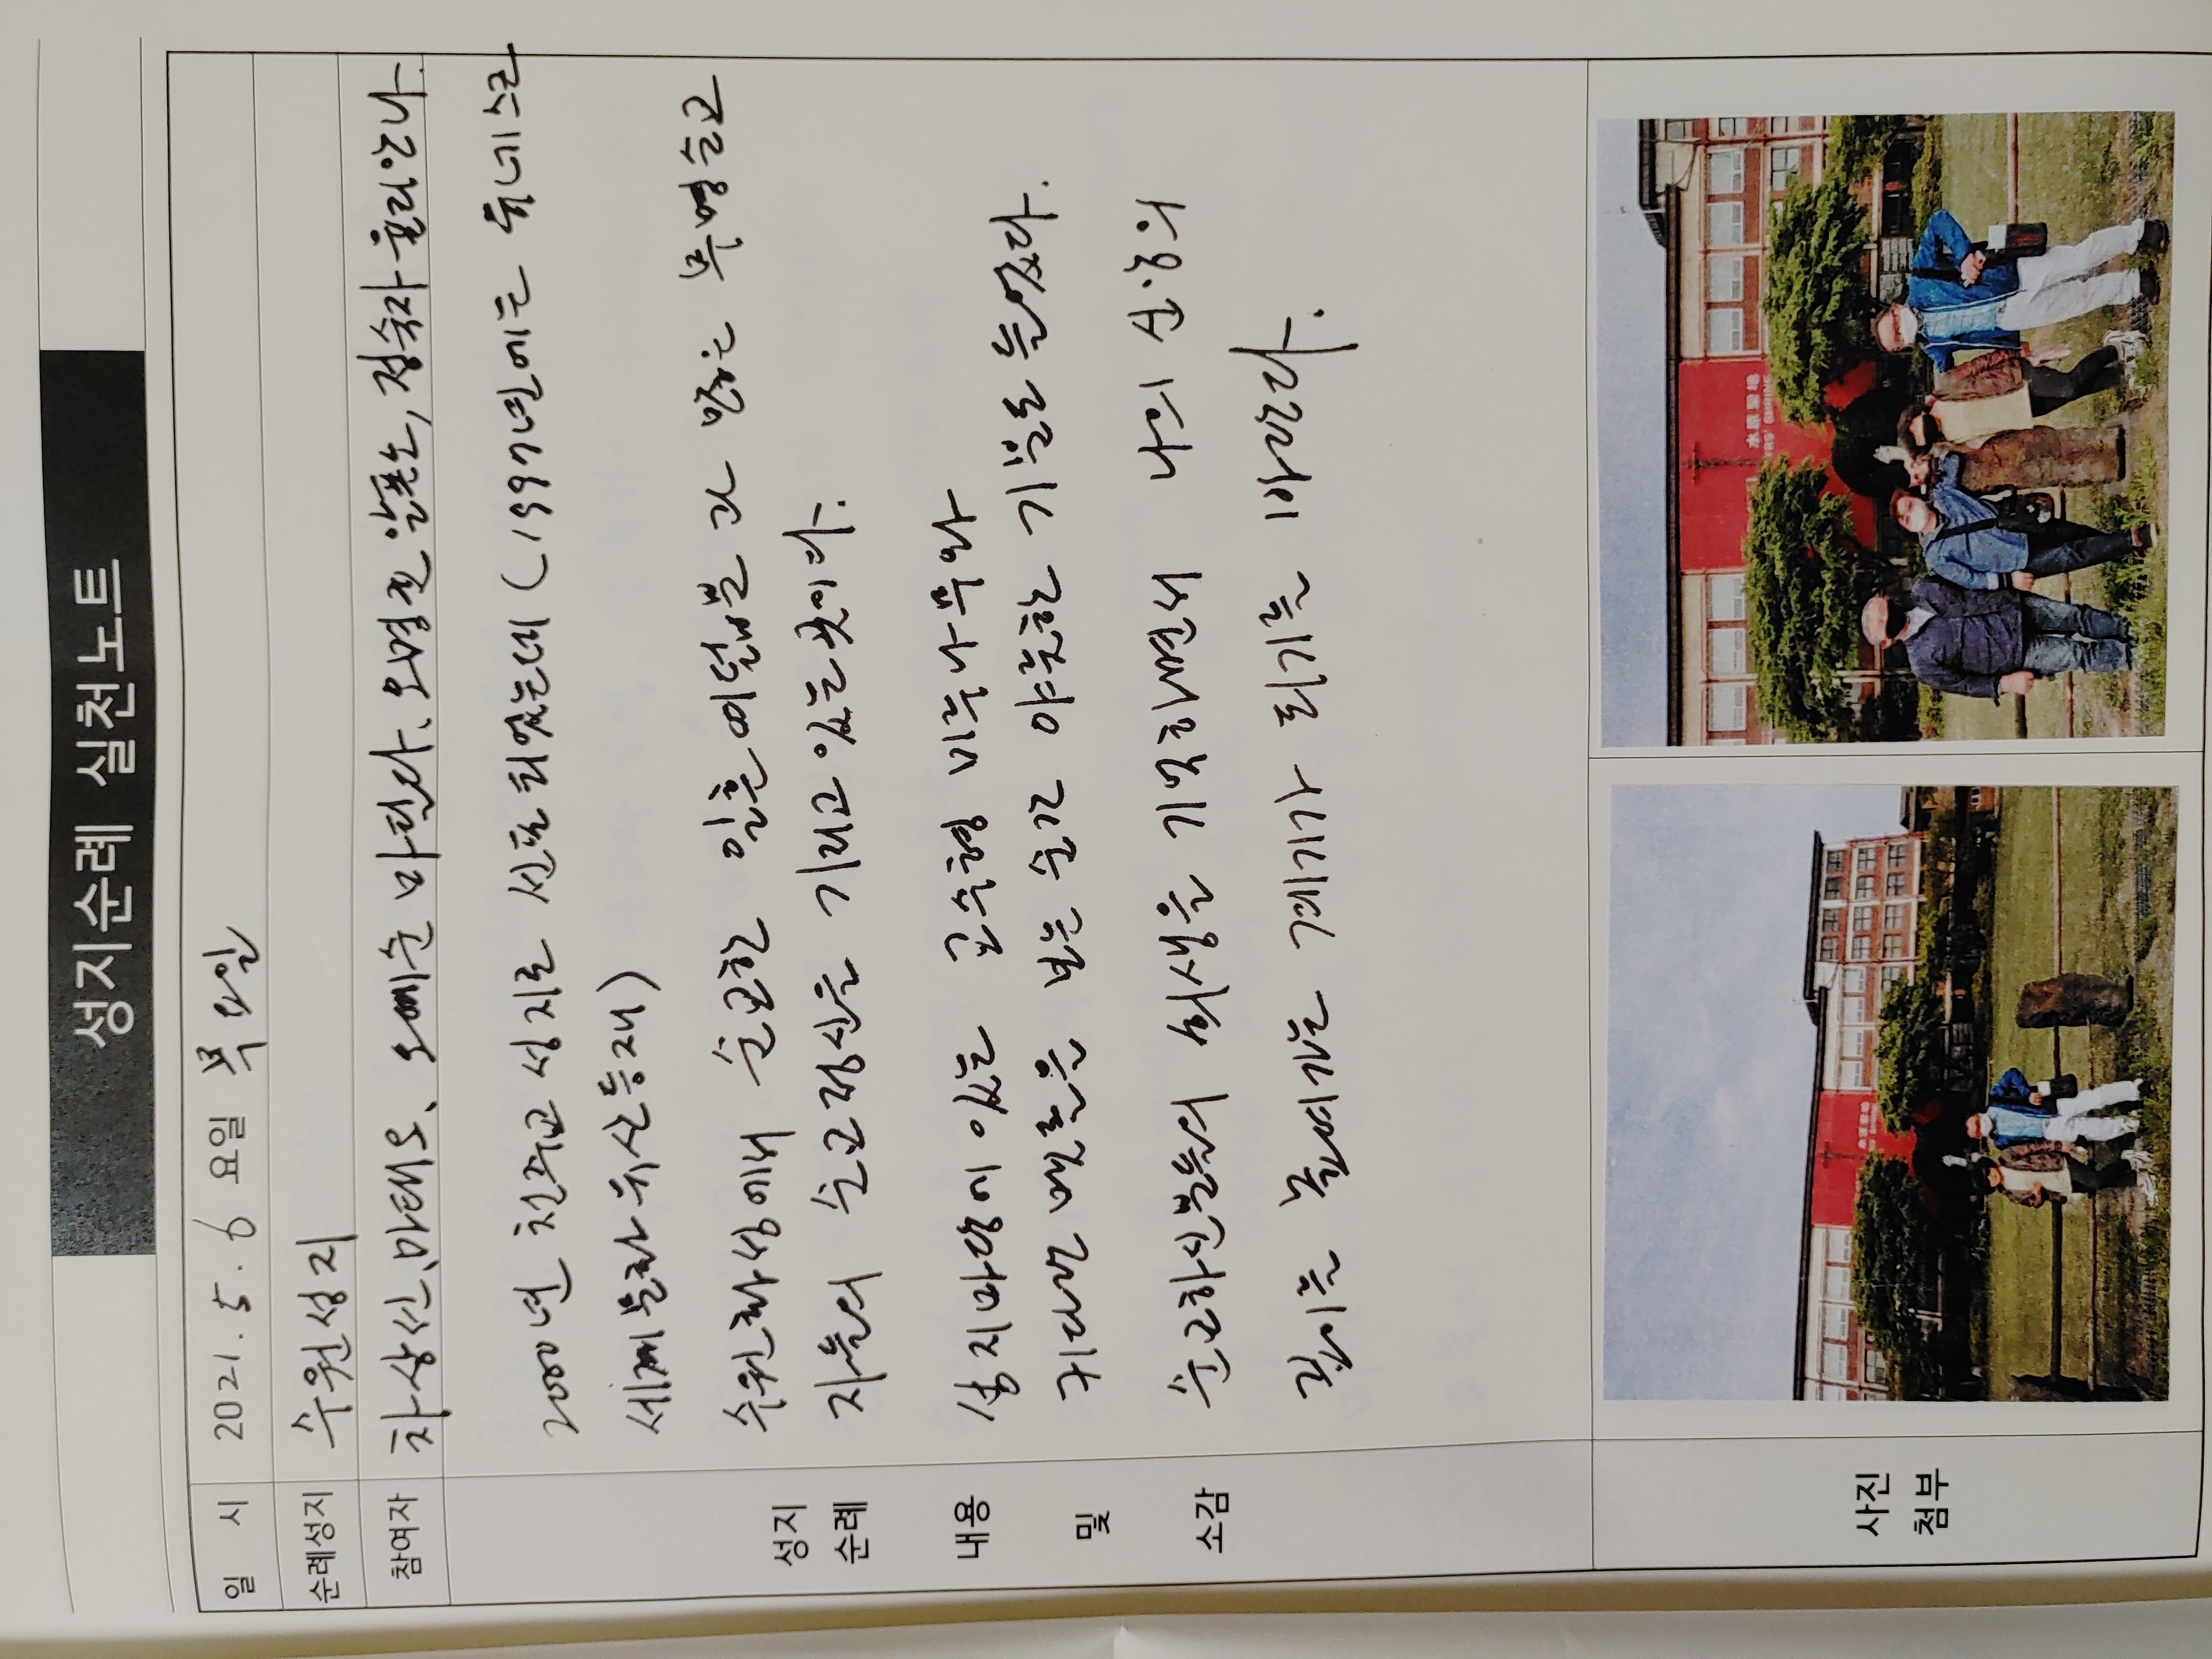 성지순례 실천노트
일 시 2021. 5. 6 요일 목요일
순례성지 수원성지
참여자 차상선, 마태오, 오예순 마틸다, 오명환 알폰소, 정숙자 율리안나.
성지
순례
내용
및
소감
2000년 천주교 성지로 선포 되었는데 (1997년에는 유네스코
세계문화유산등재)
수원화성에서 순교한 일흔여덟분 과 많은 무명순교
자들의 순교정신을 기리고 있는곳이다.
성지마당에 있는 교수형 미루나무와
커다란 맷돌을 보는 순간 야릇한 기분도 들었다.
순교하신분들의 희생을 기억하면서 나의 신앙의
깊이를 높여가는 계기가 되기를 바란다.
사진
첨부
水原聖地
水原聖地
YRS' SHRINE